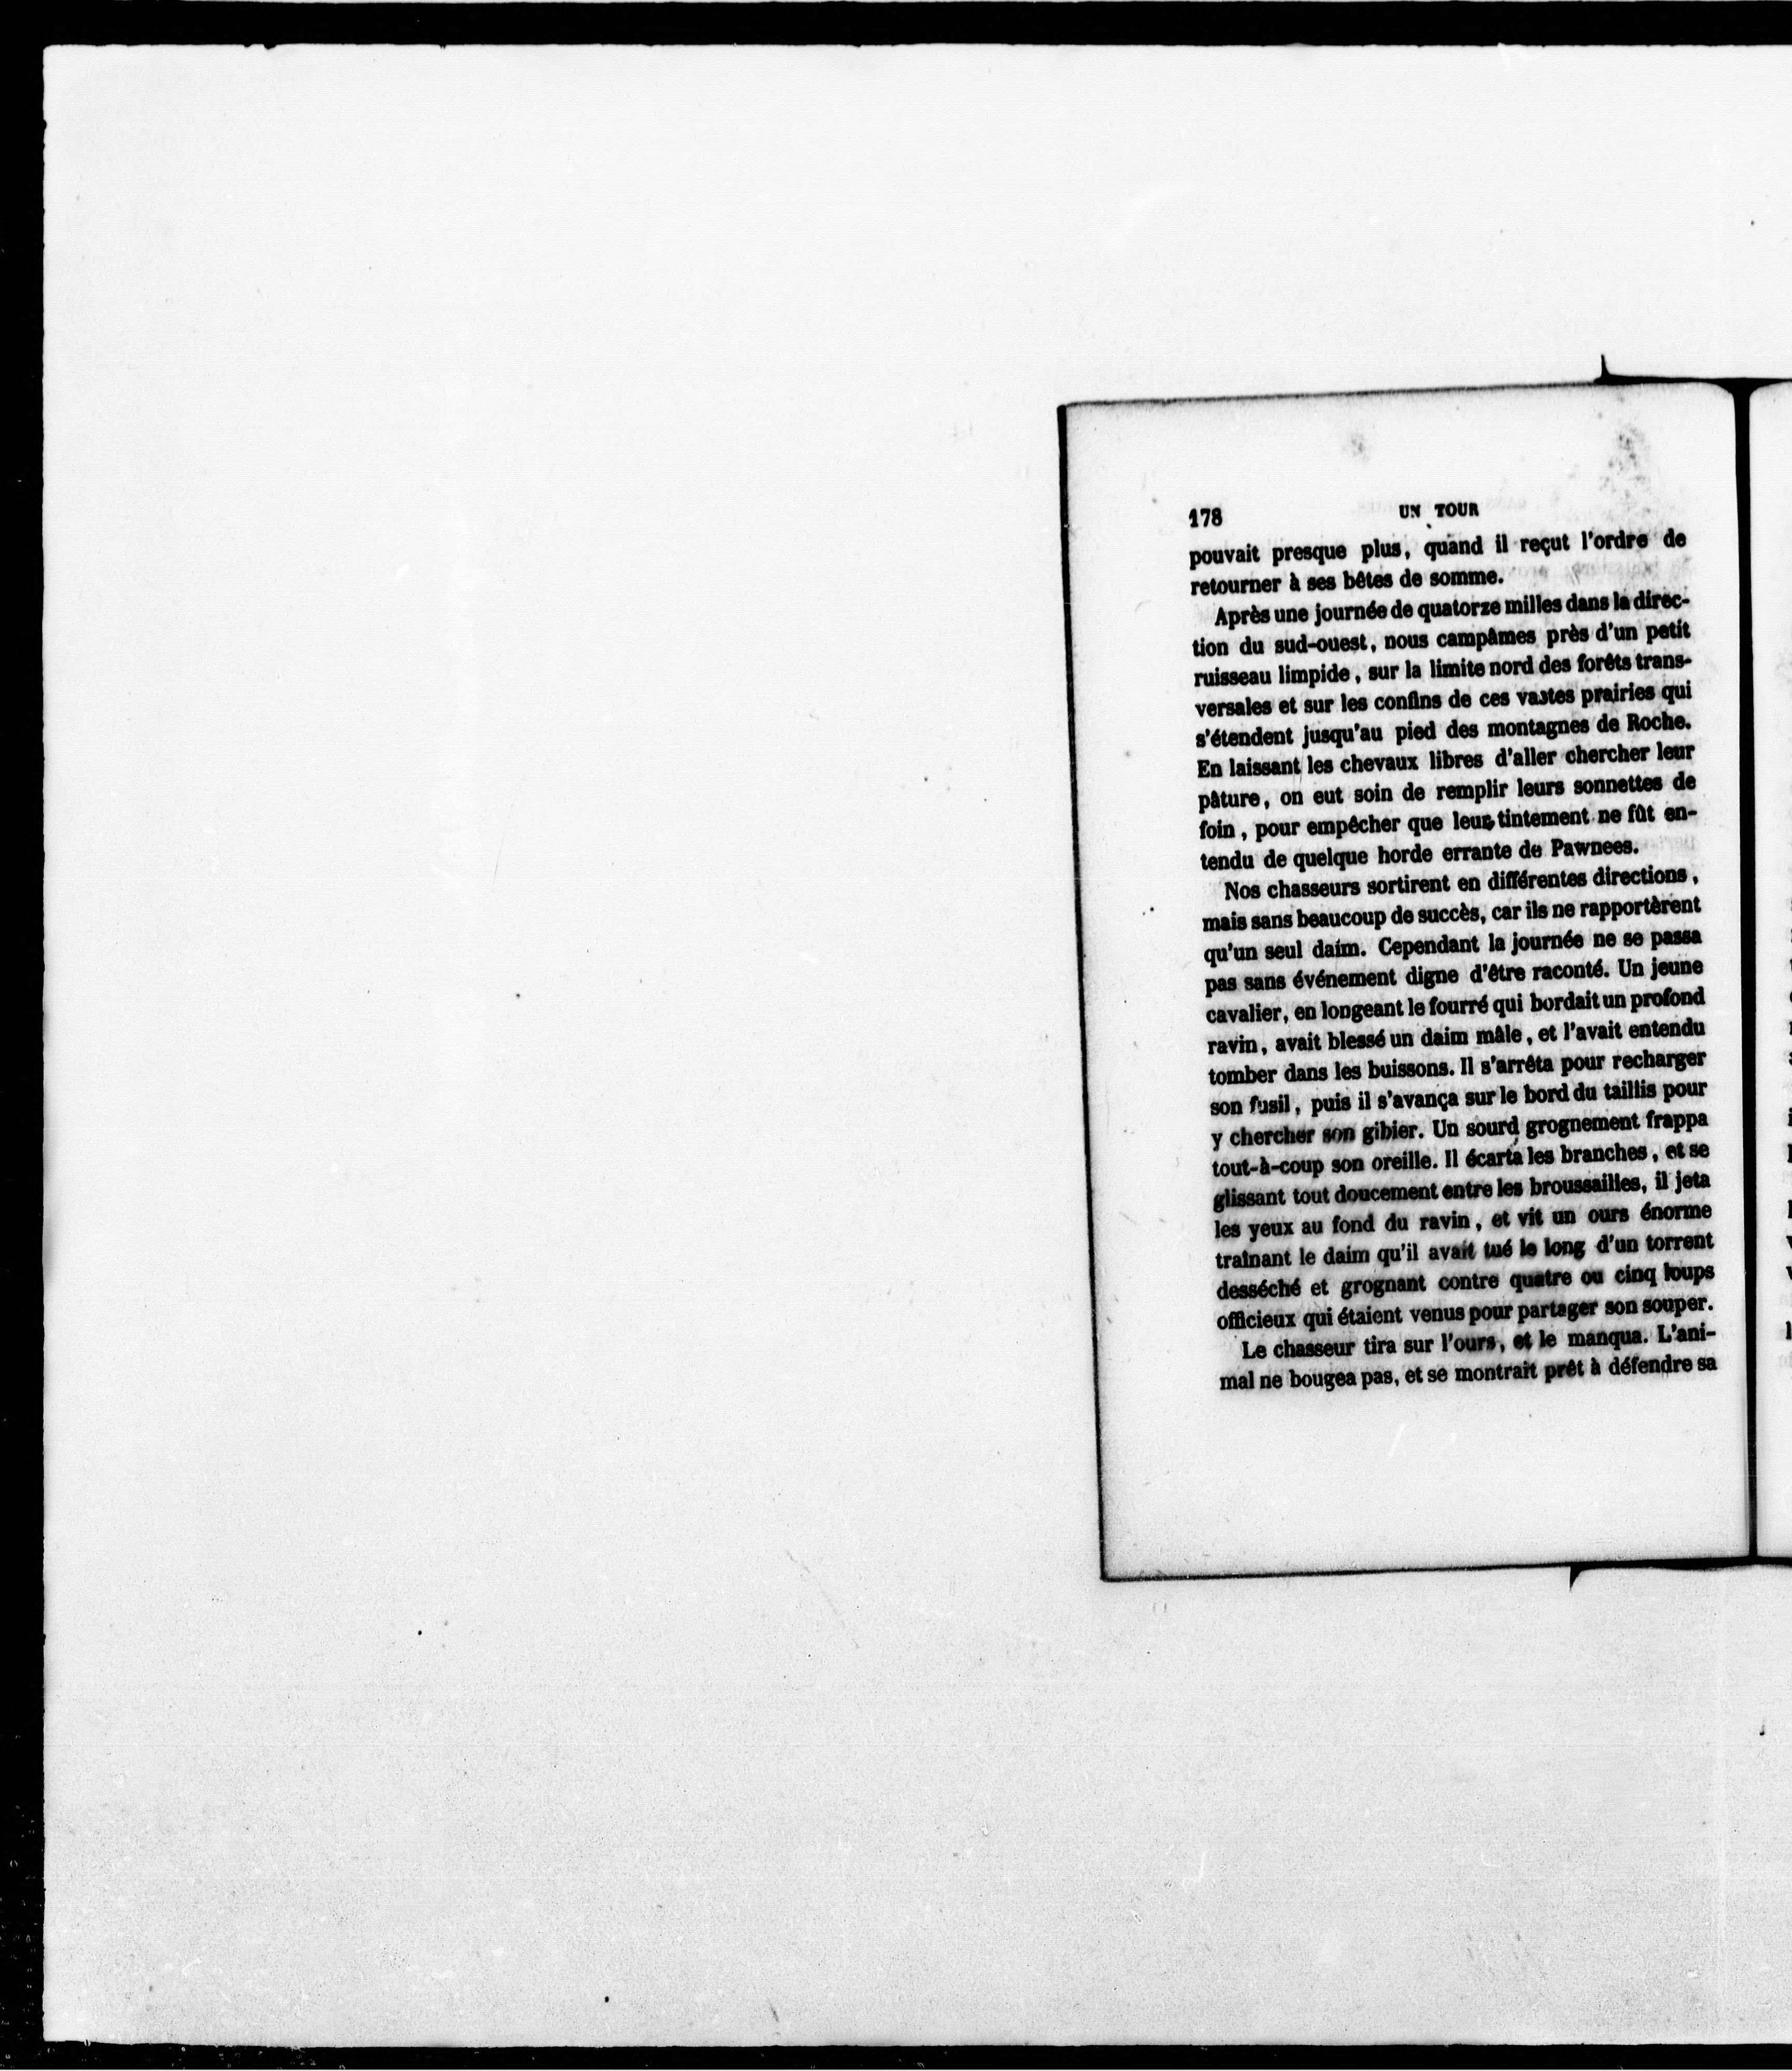 178 UN TOUR
pouvait presque plus, quand il reçut l'ordre de
retourner à ses bêtes de somme.
Après une journée de quatorze milles dans la direc-
tion du sud-ouest, nous campâmes près d'un petit
ruisseau limpide, sur la limite nord des forêts trans-
versales et sur les confins de ces vastes prairies qui
s'étendent jusqu'au pied des montagnes de Roche.
En laissant les chevaux libres d'aller chercher leur
pâture, on eut soin de remplir leurs sonnettes de
foin, pour empêcher que leur tintement ne fût en-
tendu de quelque horde errante de Pawnees.
Nos chasseurs sortirent en différentes directions,
mais sans beaucoup de succès, car ils ne rapportèrent
qu'un seul daim. Cependant la journée ne se passa
pas sans événement digne d'être raconté. Un jeune
cavalier, en longeant le fourré qui bordait un profond
ravin, avait blessé un daim mâle, et l'avait entendu
tomber dans les buissons. Il s'arrêta pour recharger
son fusil, puis il s'avança sur le bord du taillis pour
y chercher son gibier. Un sourd grognement frappa
tout-à-coup son oreille. Il écarta les branches, et se
glissant tout doucement entre les broussailles, il jeta
les yeux au fond du ravin, et vit un ours énorme
traînant le daim qu'il avait tué le long d'un torrent
desséché et grognant contre quatre ou cinq loups
officieux qui étaient venus pour partager son souper.
Le chasseur tira sur l'ours, et le manqua. L'ani-
mal ne bougea pas, et se montrait prêt à défendre sa